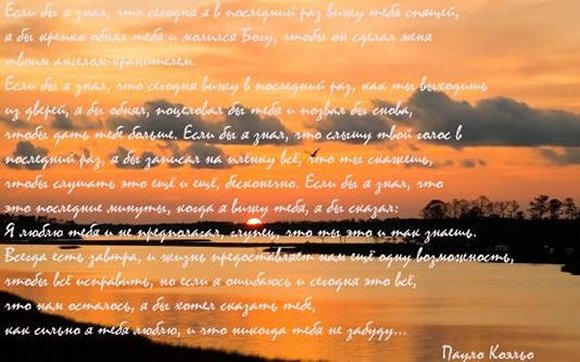 Если бы я знал, что сегодня я в последний раз вижу тебя спящей,
я бы крепко обнял тебя и молился Богу, чтобы он сделал меня
твоим ангелом-хранителем.
Если бы я знал, что сегодня вижу в последний раз, как ты выходишь
из дверей, я бы обнял, поцеловал бы тебя и позвал бы снова,
чтобы дать тебе больше. Если бы я знал, что слышу твой голос в
последний раз, я бы записал на плёнку всё, что ты скажешь,
чтобы слушать это ещё и ещё, бесконечно. Если бы я знал, что
это последние минуты, когда я вижу тебя, я бы сказал:
Я люблю тебя и не предполагал, глупец, что ты это и так знаешь.
Всегда есть завтра, и жизнь предоставляет нам ещё одну возможность,
чтобы всё исправить, но если я ошибаюсь и сегодня это всё,
что нам осталось, я бы хотел сказать тебе,
как сильно я тебя люблю, и что никогда тебя не забуду...
Пауло Коэльо